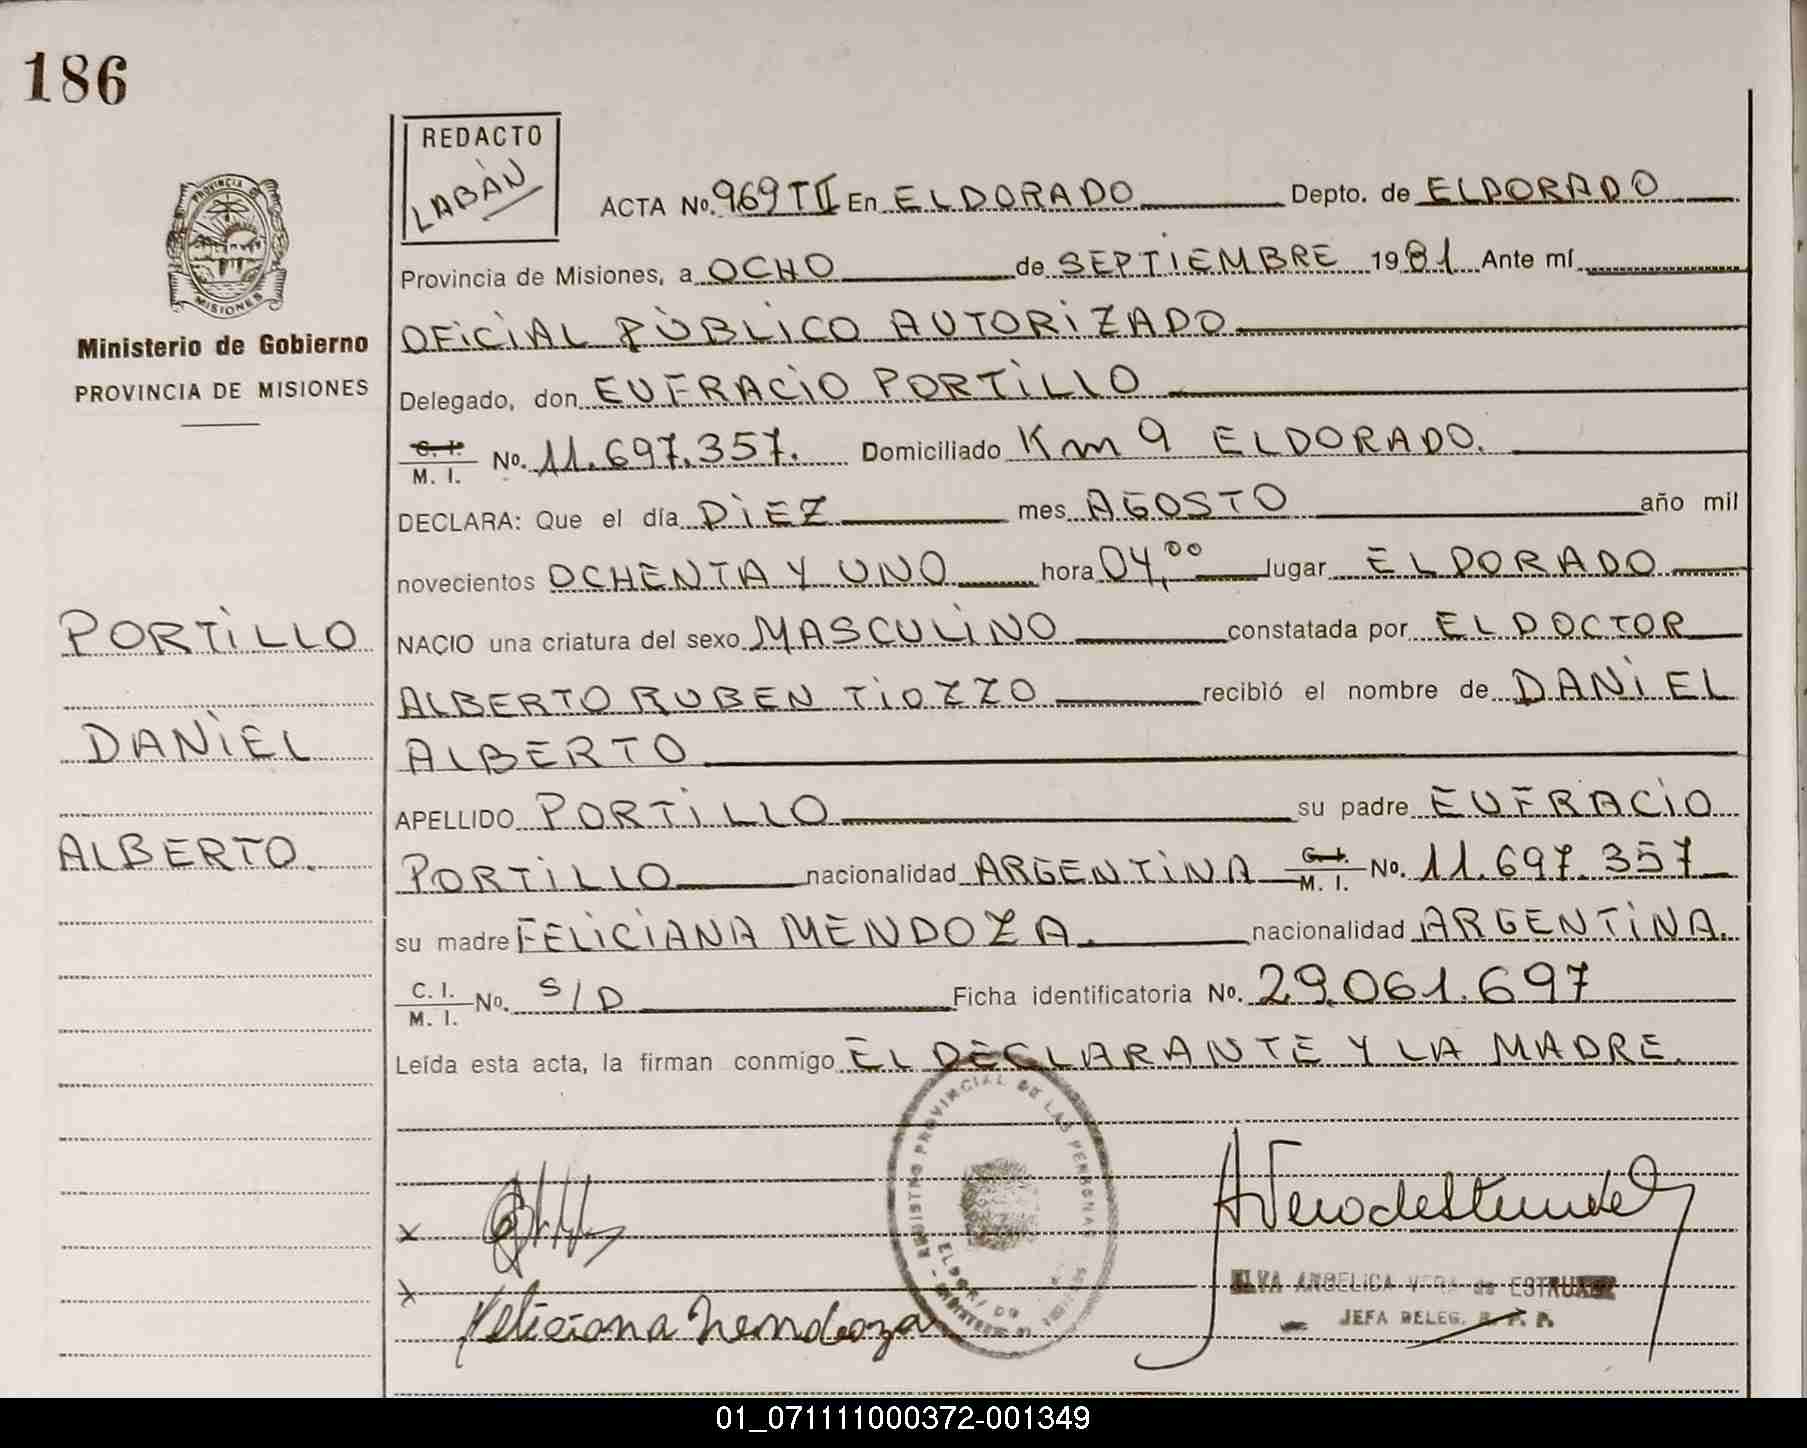 186
REDACTO
LABÁN
ACTA No. 969 T II En ELDORADO Depto. de ELDORADO
Provincia de Misiones, a OCHO de SEPTIEMBRE 1981 Ante mí
OFICIAL PÚBLICO AUTORIZADO
Ministerio de Gobierno
PROVINCIA DE MISIONES
Delegado, don EUFRACIO PORTILLO
C. I.
M. I. No. 11.697.357. Domiciliado Km 9 ELDORADO.
DECLARA: Que el día DIEZ mes AGOSTO año mil
novecientos OCHENTA Y UNO hora 04,00 lugar ELDORADO
PORTILLO
DANIEL
ALBERTO.
NACIO una criatura del sexo MASCULINO constatada por EL DOCTOR
ALBERTO RUBEN TIOZZO recibió el nombre de DANIEL
ALBERTO
APELLIDO PORTILLO su padre EUFRACIO
PORTILLO nacionalidad ARGENTINA C. I. M. I. No. 11.697.357
su madre FELICIANA MENDOZA. nacionalidad ARGENTINA.
C. I.
M. I. No. S/D Ficha identificatoria No. 29.061.697
Leída esta acta, la firman conmigo EL DECLARANTE Y LA MADRE.
REGISTRO PROVINCIAL DE LAS PERSONAS
x
x
Feliciana Mendoza
ELVA ANGELICA VERA de ESTRUXEZ
JEFA DELEG. R. P. P.
PROVINCIA DE
MISIONES
01_071111000372-001349